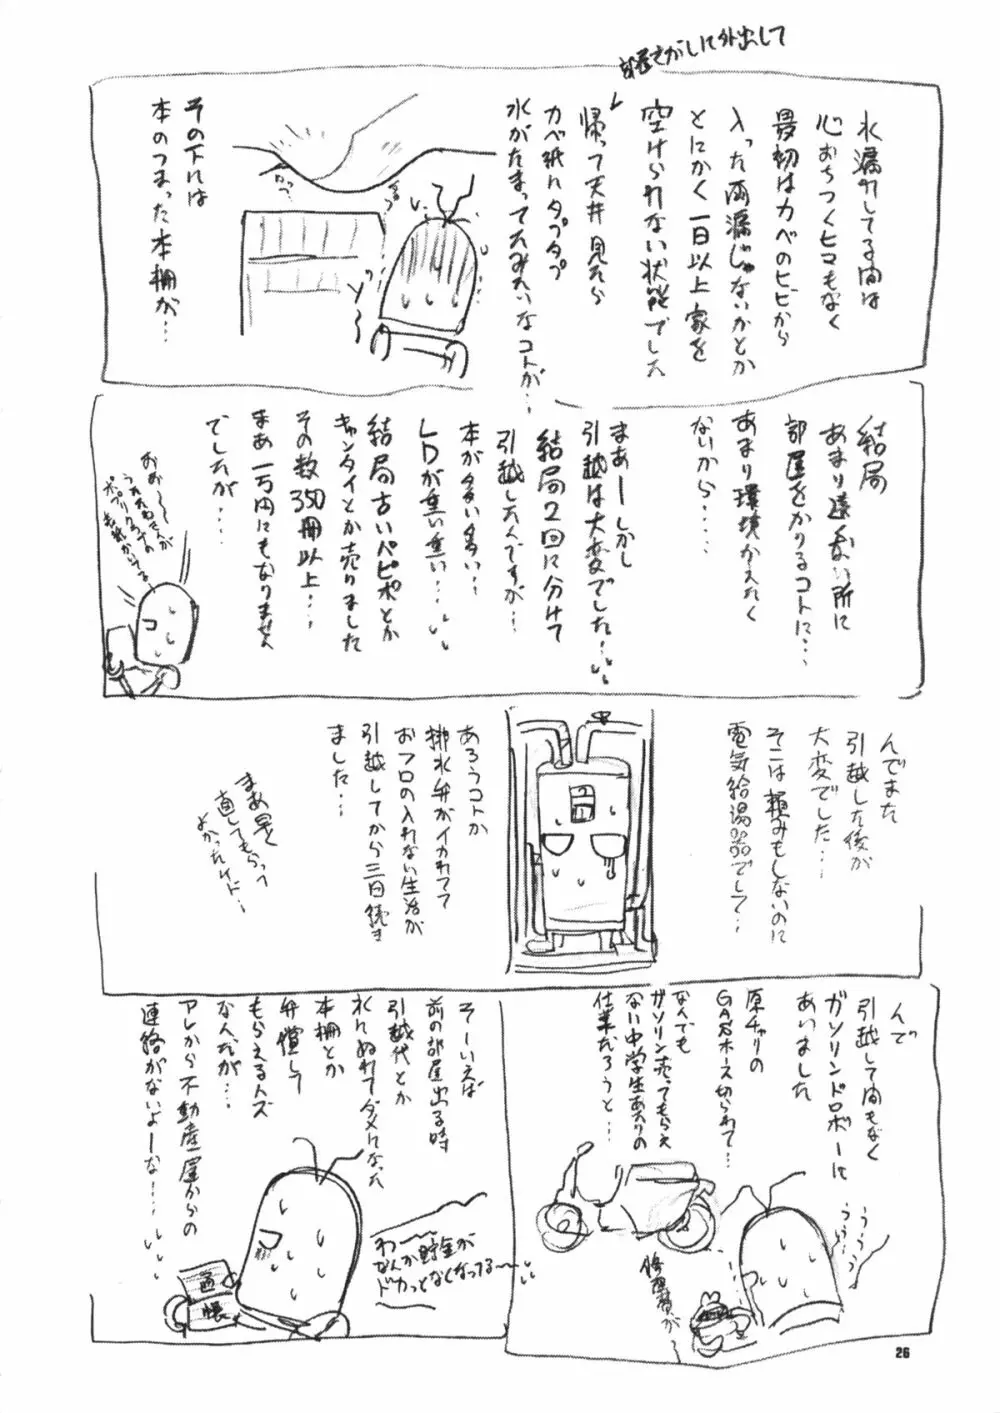 水漏れしてる間は
心おちつくヒマもなく
最初はカベのヒビから
入った雨漏じゃないかとか
とにかく一日以上家を
空けられない状態でした
部屋さがしに外出して
帰って天井見たら
カベ紙にタプタプ
水がたまってるみたいなコトが…
その下には
本のつまった本棚が…
結局
あまり遠くない所に
部屋をかりるコトに…
あまり環境かえたく
ないから……
まあーしかし
引越は大変でした…
結局2回に分けて
引越したんですが…
本が多い多い…
LDが重い重い…
結局古いパピポとか
キャンタイとか売りました
その数350冊以上…
まあ一万円にもなりません
でしたが……
おお～～
うたたねさんが
ポプリクラブの
表紙かいてる
んでまた
引越した後が
大変でした…
そこは頼みもしないのに
電気給湯器でして…
あろうコトか
排水弁がイカれてて
おフロの入れない生活が
引越してから三日続き
ました…
まあ早く
直してもらって
よかったケド…
んで
引越して間もなく
ガソリンドロボーに
あいました
原チャリの
GASホース切られて…
なんでも
ガソリン売ってもらえ
ない中学生あたりの
仕事だろうと…
うううう
うう…
修理費が～
そーいえば
前の部屋出る時
引越代とか
水にぬれてダメになった
本棚とか
弁償して
もらえるハズ
なんだが…
アレから不動産屋からの
連絡がないよーな…
わ～～
なんか貯金が
ドカッとなくなってる～
通帳
26